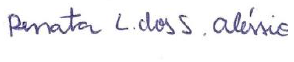 Renata L. dos S. Aléssio